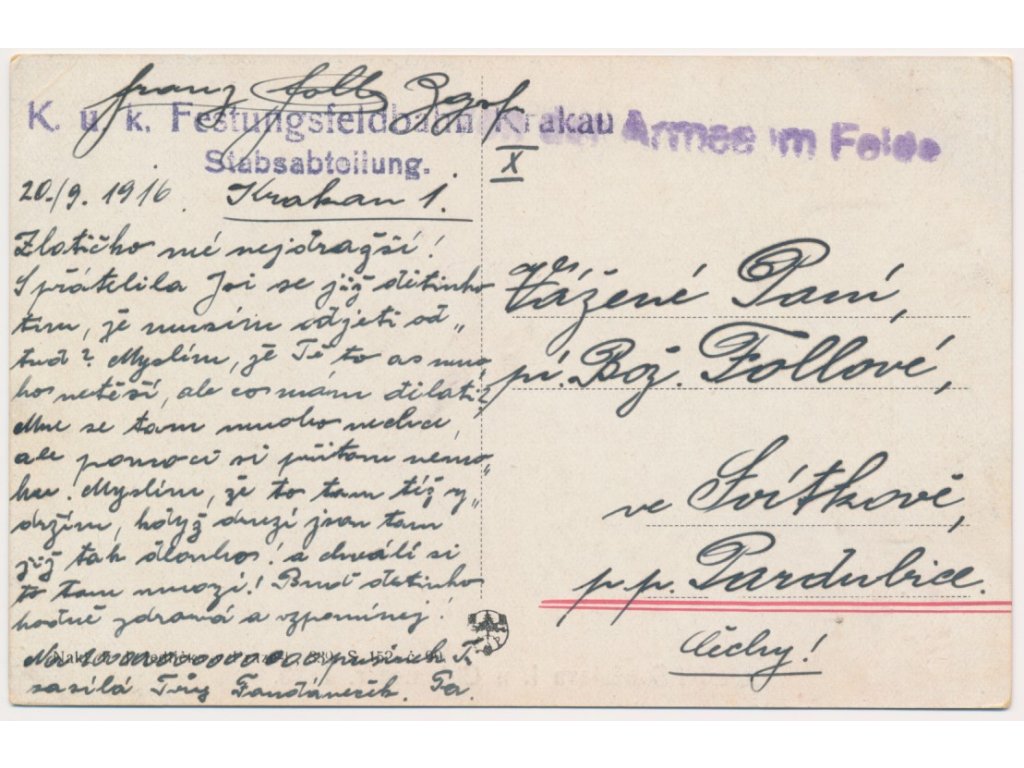 Franz Foll Zgsf.
K. u. k. Festungsfeldbahn Krakau
Armee im Felde
Stabsabteilung.
X
20./9. 1916. Krakau 1.
Zlatíčko mé nejdražší!
Spřátelila Jsi se již dětinko
tím, že musím odjeti od„
tud? Myslím, že Tě to as mno„
ho netěší, ale co mám dělati?
Mne se tam mnoho nechce,
ale pomoci si přitom nemo„
hu. Myslím, že to tam též vy„
držím, když druzí jsou tam
již tak dlouho! a chválí si
to tam mnozí! Buď dětinko
hodně zdravá a vzpomínej!
pusinek Ti
zasílá Tvůj Fandáneček. Pa.
Vážené Paní,
pí. Bož. Follové,
ve Svítkově,
p. p. Pardubice.
Čechy!